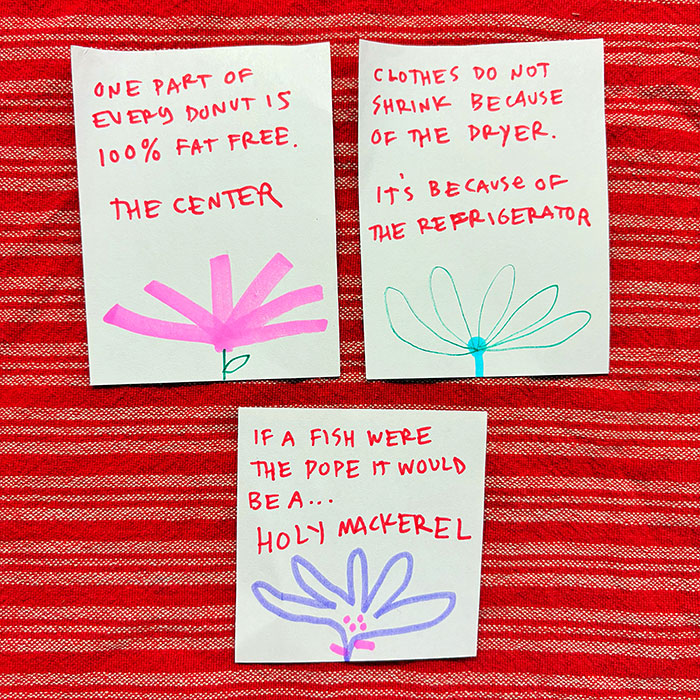 ONE PART OF
EVERY DONUT IS
100% FAT FREE.
THE CENTER
CLOTHES DO NOT
SHRINK BECAUSE
OF THE DRYER.
IT'S BECAUSE OF
THE REFRIGERATOR
IF A FISH WERE
THE POPE IT WOULD
BE A...
HOLY MACKEREL